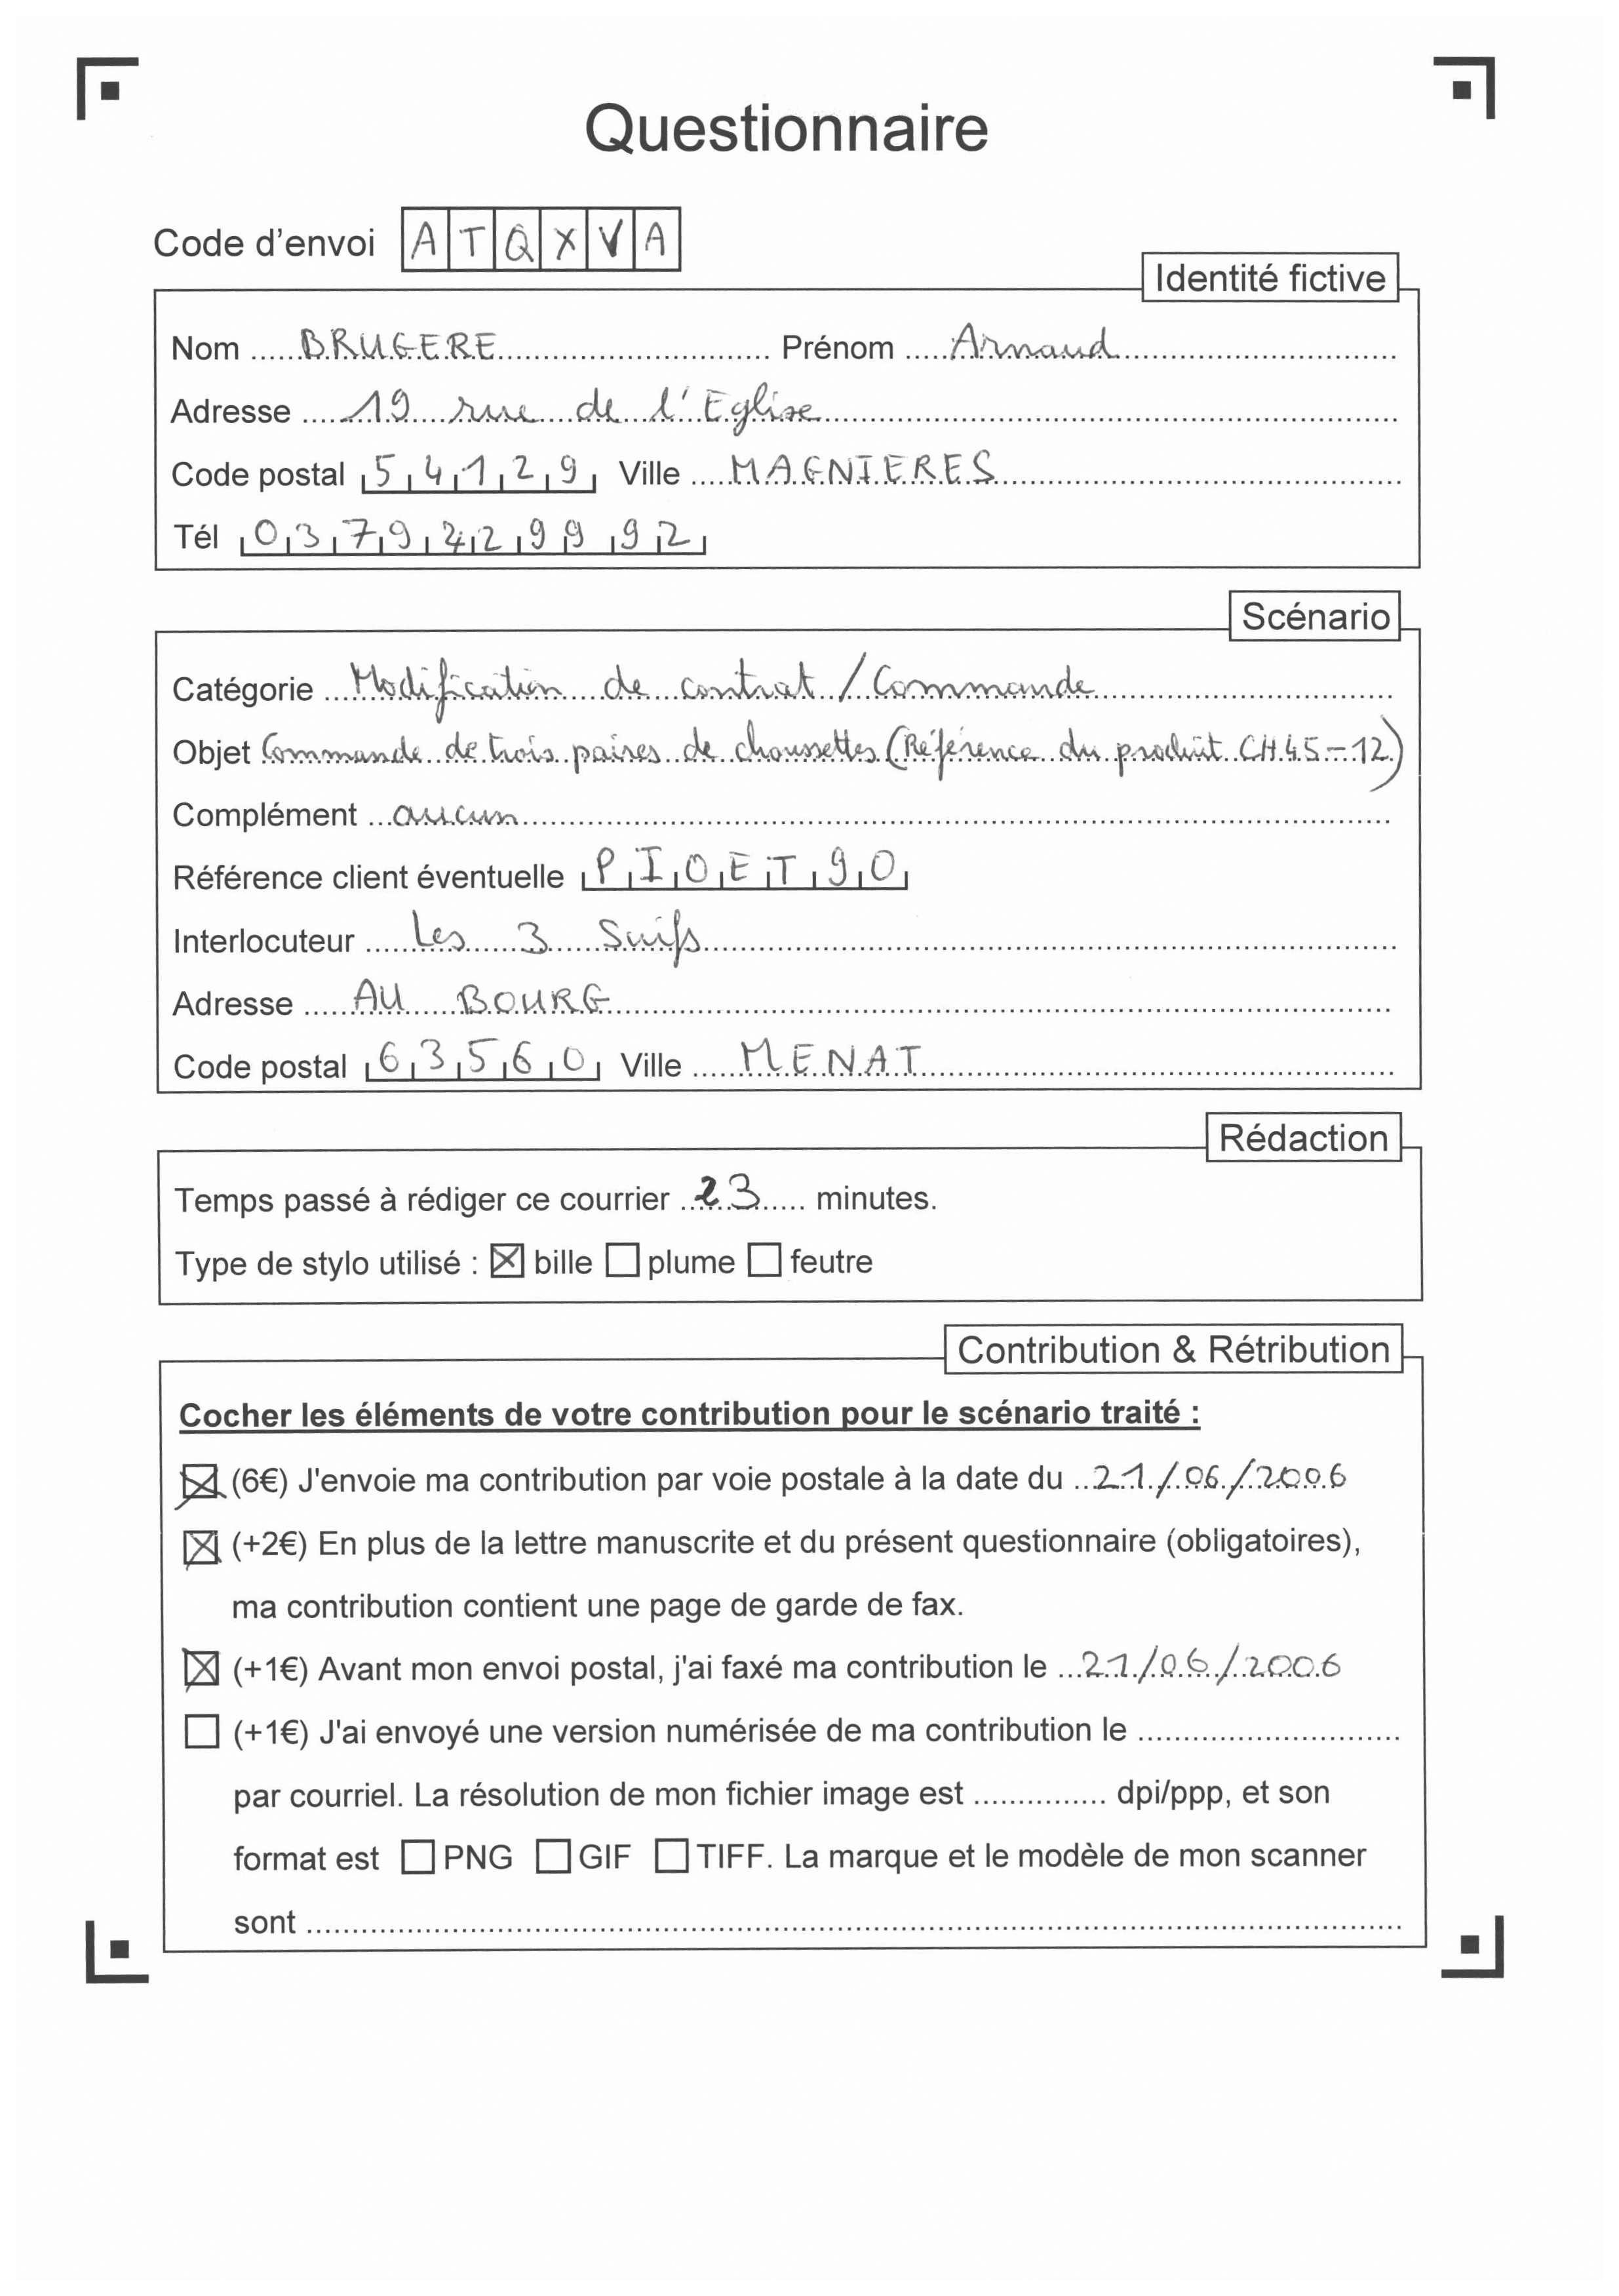 Questionnaire
Code d'envoi ATQXVA
Identité fictive
Nom BRUGERE Prénom Arnaud
Adresse 19 rue de l'Eglise
Code postal 54129 Ville MAGNIERES
Tél 0379429992
Scénario
Catégorie Modification de contrat / Commande
Objet Commande de trois paires de chaussettes (Référence du produit CH45-12)
Complément aucun
Référence client éventuelle PIOET90
Interlocuteur Les 3 Suifs
Adresse AU BOURG
Code postal 63560 Ville MENAT
Rédaction
Temps passé à rédiger ce courrier 23 minutes.
Type de stylo utilisé : ☒ bille ☐ plume ☐ feutre
Contribution & Rétribution
Cocher les éléments de votre contribution pour le scénario traité :
☒ (6€) J'envoie ma contribution par voie postale à la date du 21/06/2006
☒ (+2€) En plus de la lettre manuscrite et du présent questionnaire (obligatoires),
ma contribution contient une page de garde de fax.
☒ (+1€) Avant mon envoi postal, j'ai faxé ma contribution le 21/06/2006
☐ (+1€) J'ai envoyé une version numérisée de ma contribution le
par courriel. La résolution de mon fichier image est ............... dpi/ppp, et son
format est ☐ PNG ☐ GIF ☐ TIFF. La marque et le modèle de mon scanner
sont